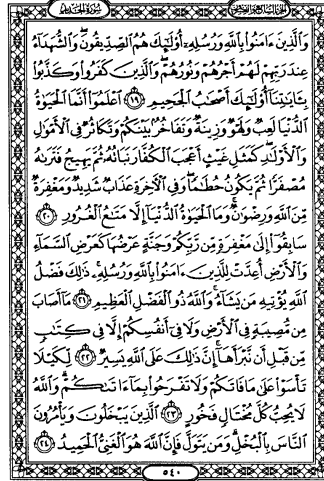 الجزء السابع والعشرون سورة الحديد
وَٱلَّذِينَ ءَامَنُوا۟ بِٱللَّهِ وَرُسُلِهِۦٓ أُو۟لَٰٓئِكَ هُمُ ٱلصِّدِّيقُونَ ۖ وَٱلشُّهَدَآءُ
عِندَ رَبِّهِمْ لَهُمْ أَجْرُهُمْ وَنُورُهُمْ ۖ وَٱلَّذِينَ كَفَرُوا۟ وَكَذَّبُوا۟
بِـَٔايَٰتِنَآ أُو۟لَٰٓئِكَ أَصْحَٰبُ ٱلْجَحِيمِ ١٩ ٱعْلَمُوٓا۟ أَنَّمَا ٱلْحَيَوٰةُ
ٱلدُّنْيَا لَعِبٌ وَلَهْوٌ وَزِينَةٌ وَتَفَاخُرٌۢ بَيْنَكُمْ وَتَكَاثُرٌ فِى ٱلْأَمْوَٰلِ
وَٱلْأَوْلَٰدِ ۖ كَمَثَلِ غَيْثٍ أَعْجَبَ ٱلْكُفَّارَ نَبَاتُهُۥ ثُمَّ يَهِيجُ فَتَرَىٰهُ
مُصْفَرًّا ثُمَّ يَكُونُ حُطَٰمًا ۖ وَفِى ٱلْءَاخِرَةِ عَذَابٌ شَدِيدٌ وَمَغْفِرَةٌ
مِّنَ ٱللَّهِ وَرِضْوَٰنٌ ۚ وَمَا ٱلْحَيَوٰةُ ٱلدُّنْيَآ إِلَّا مَتَٰعُ ٱلْغُرُورِ ٢٠
سَابِقُوٓا۟ إِلَىٰ مَغْفِرَةٍ مِّن رَّبِّكُمْ وَجَنَّةٍ عَرْضُهَا كَعَرْضِ ٱلسَّمَآءِ
وَٱلْأَرْضِ أُعِدَّتْ لِلَّذِينَ ءَامَنُوا۟ بِٱللَّهِ وَرُسُلِهِۦ ۚ ذَٰلِكَ فَضْلُ
ٱللَّهِ يُؤْتِيهِ مَن يَشَآءُ ۚ وَٱللَّهُ ذُو ٱلْفَضْلِ ٱلْعَظِيمِ ٢١ مَآ أَصَابَ
مِن مُّصِيبَةٍ فِى ٱلْأَرْضِ وَلَا فِىٓ أَنفُسِكُمْ إِلَّا فِى كِتَٰبٍ
مِّن قَبْلِ أَن نَّبْرَأَهَآ ۚ إِنَّ ذَٰلِكَ عَلَى ٱللَّهِ يَسِيرٌ ٢٢ لِّكَيْلَا
تَأْسَوْا۟ عَلَىٰ مَا فَاتَكُمْ وَلَا تَفْرَحُوا۟ بِمَآ ءَاتَىٰكُمْ ۗ وَٱللَّهُ
لَا يُحِبُّ كُلَّ مُخْتَالٍ فَخُورٍ ٢٣ ٱلَّذِينَ يَبْخَلُونَ وَيَأْمُرُونَ
ٱلنَّاسَ بِٱلْبُخْلِ ۗ وَمَن يَتَوَلَّ فَإِنَّ ٱللَّهَ هُوَ ٱلْغَنِىُّ ٱلْحَمِيدُ ٢٤
٥٤٠